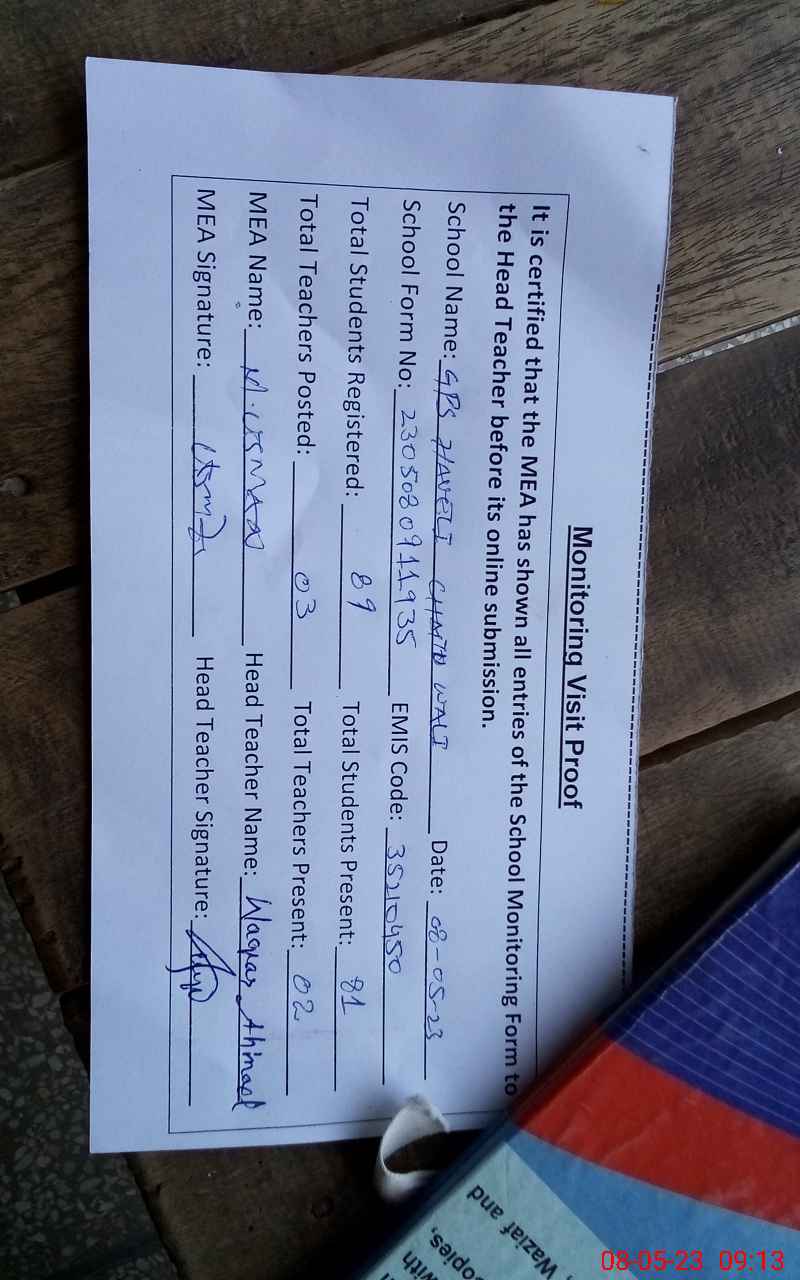 Monitoring Visit Proof
It is certified that the MEA has shown all entries of the School Monitoring Form to
the Head Teacher before its online submission.
School Name: GPS HAVELI CHMTD WALI Date: 08-05-23
School Form No: 2305080911935 EMIS Code: 35210450
Total Students Registered: 89 Total Students Present: 81
Total Teachers Posted: 03 Total Teachers Present: 02
MEA Name: M. USMAN Head Teacher Name: Waqas Ahmad
MEA Signature: Usman Head Teacher Signature:
Waziaf and
opies,
with
08-05-23 09:13